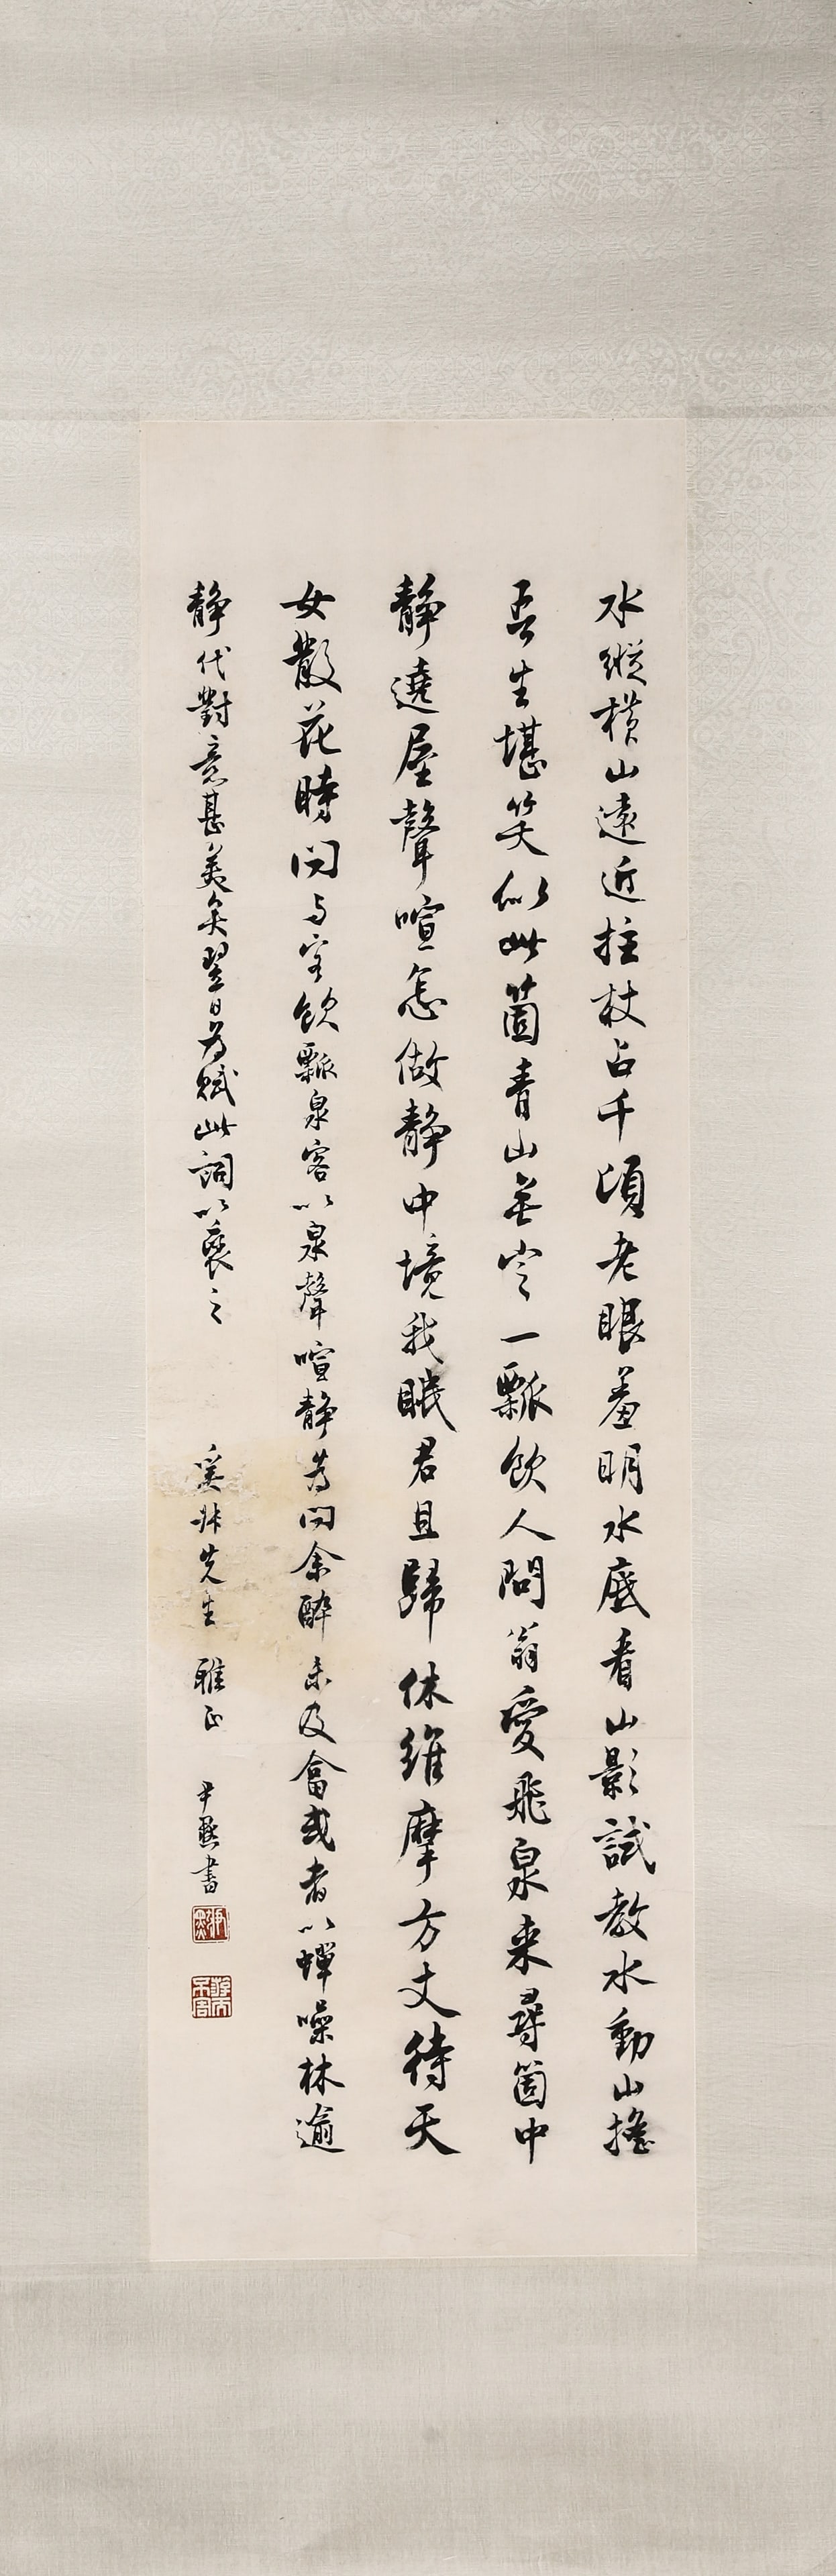 水縱橫山遠近拄杖占千頃老眼羞明水底看山影試教水動山搖
吾生堪笑似此箇青山無定一瓢飲人問翁愛飛泉来尋箇中
靜遶屋聲喧怎做靜中境我眠君且歸休維摩方丈待天
女散花時問与客飲瓢泉客以泉聲喧靜為問余醉未及答或者以蟬噪林逾
靜代對意甚美矣翌日為賦此詞以褒之
奚非先生 雅正
尹默書